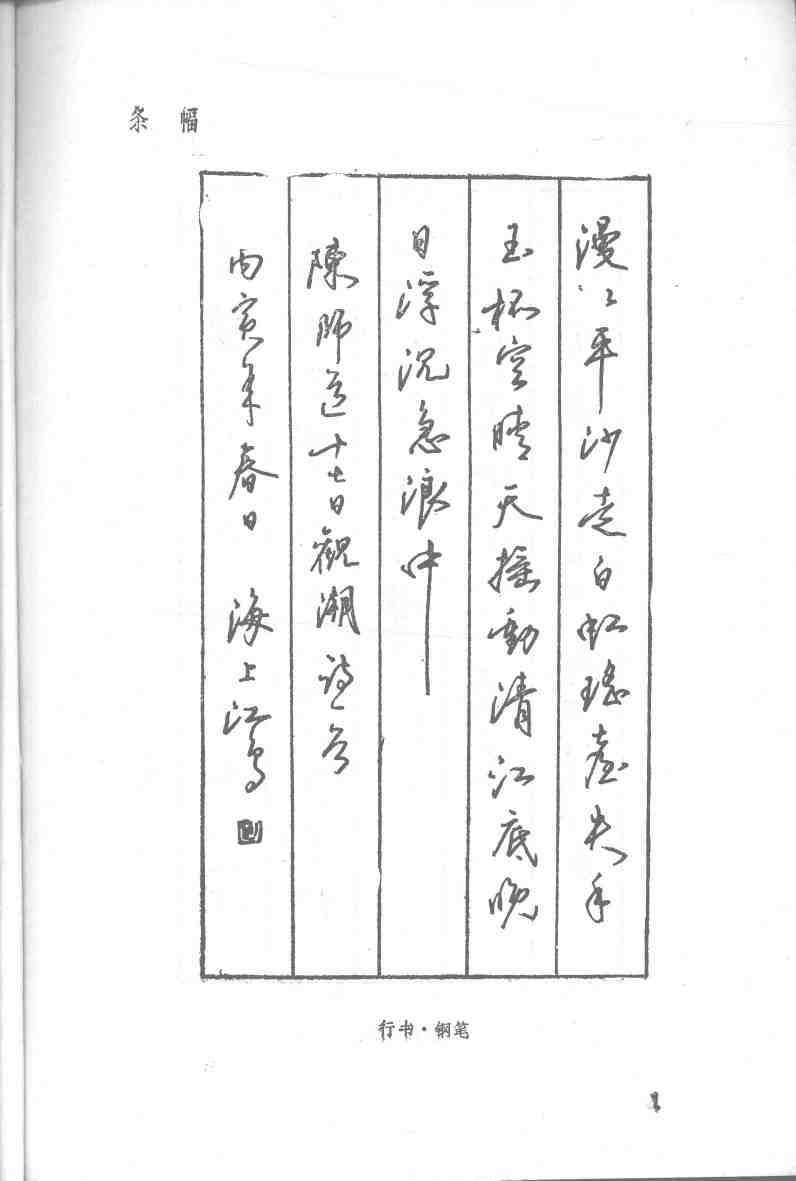 条 幅
漫〻平沙走白虹瑤臺失手
玉杯空晴天摇動清江底晚
日浮沉急浪中
陳師道十七日觀潮詩一首
丙寅年春日 海上江鸟
行书·钢笔
1